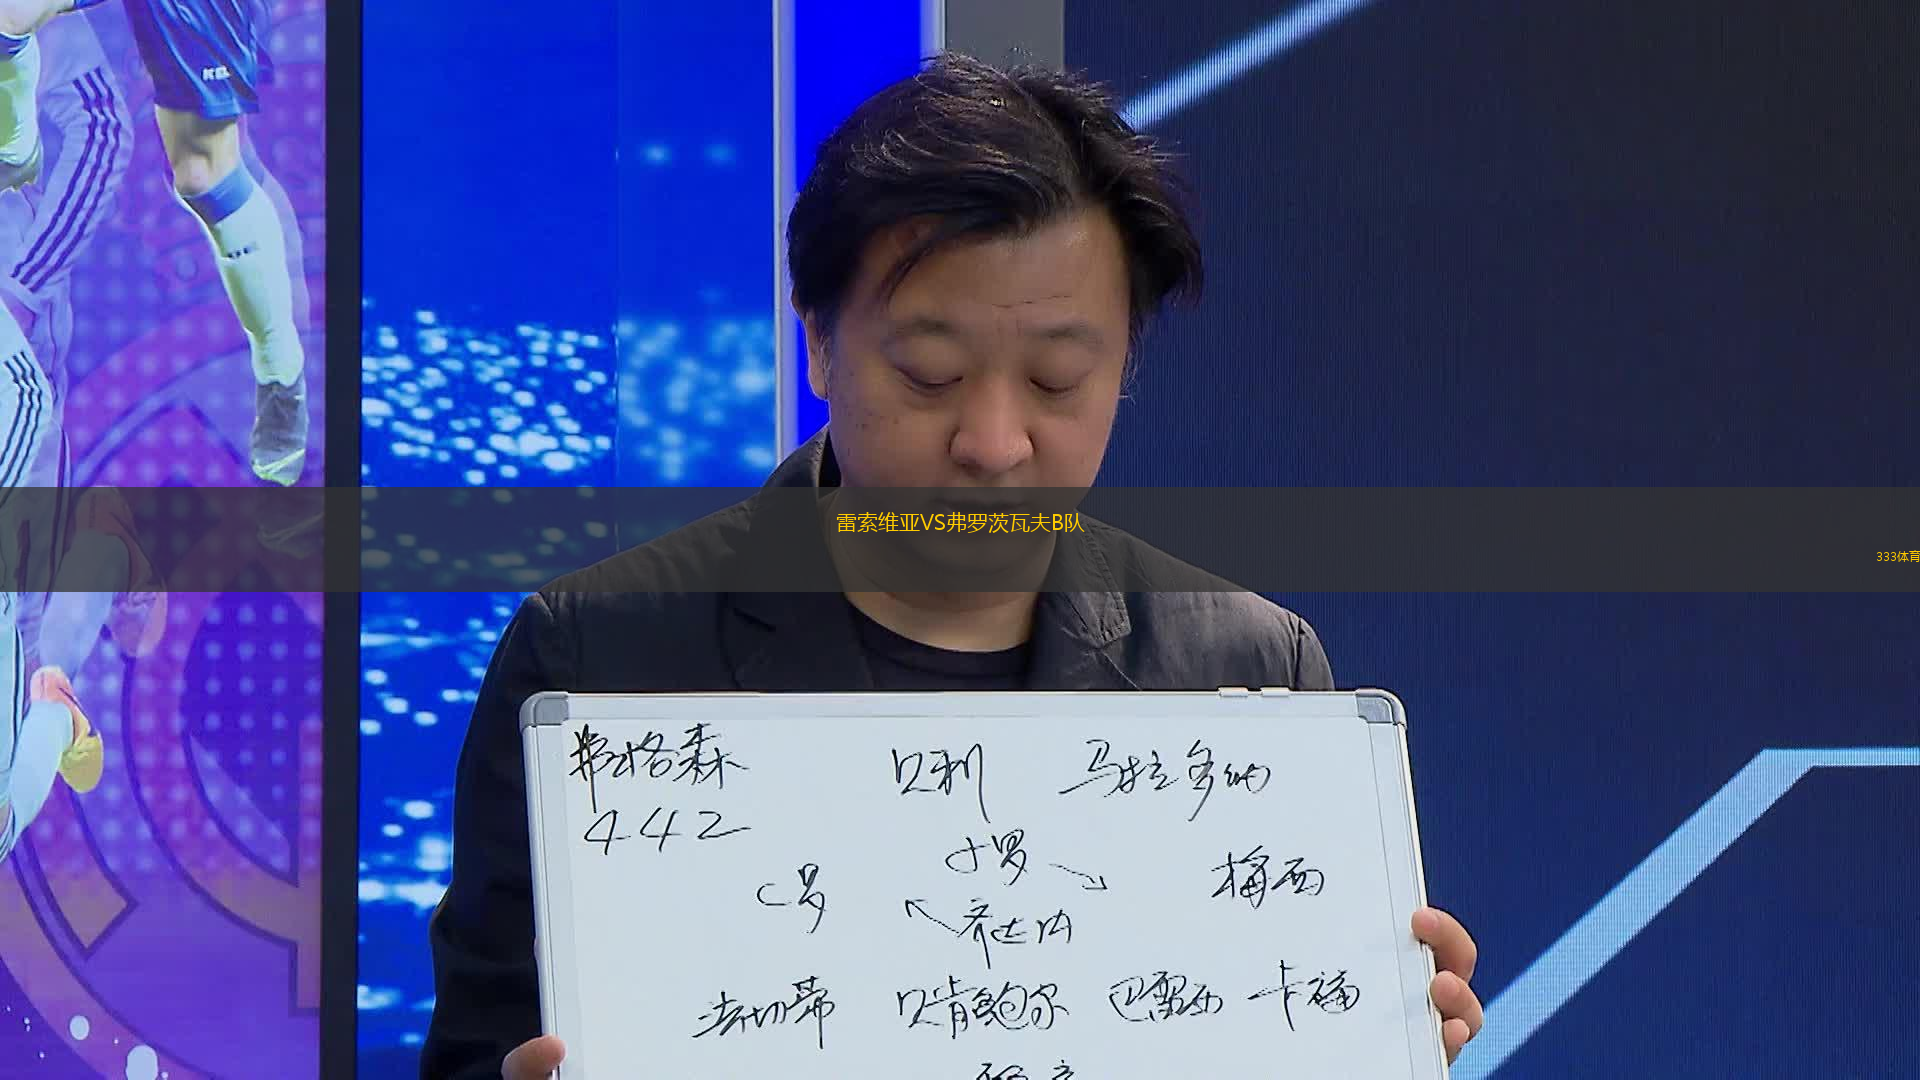 雷索维亚VS弗罗茨瓦夫B队
333体育
弗格森 贝利 马拉多纳
442
小罗
C罗 梅西
齐达内
法切蒂 贝肯鲍尔 巴雷西 卡福